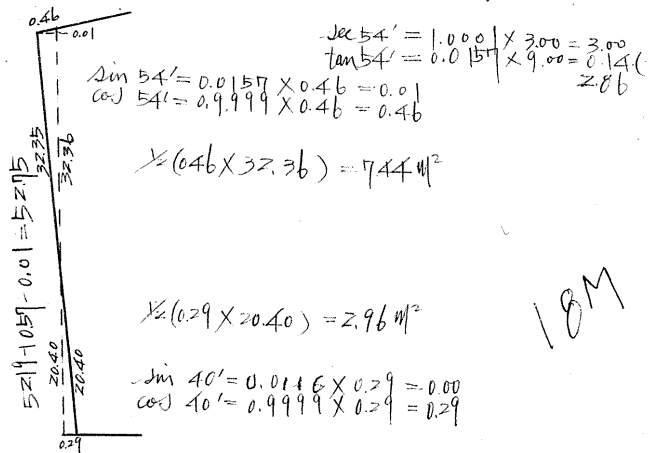 0.46
0.01
sec 54' = 1.0001 × 3.00 = 3.00
tan 54' = 0.0157 × 9.00 = 0.14(-
2.86
sin 54' = 0.0157 × 0.46 = 0.01
cos 54' = 0.9999 × 0.46 = 0.46
32.35
32.36
½(046 × 32.36) = 744 m²
5219+057-0.01=52.75
½(0.29 × 20.40) = 2.96 m²
18M
20.40
20.40
sin 40' = 0.0116 × 0.29 = 0.00
cos 40' = 0.9999 × 0.29 = 0.29
0.29